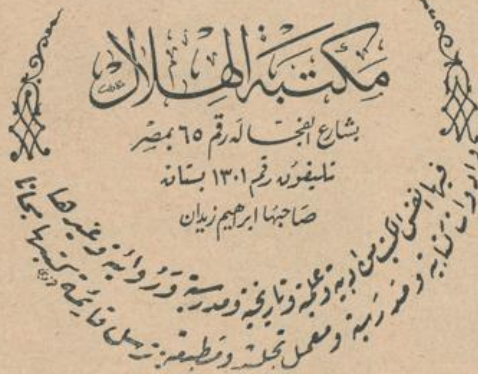 مكتبة الهلال
بشارع الفجاله رقم ٦٥ بمصر
تليفون رقم ١٣٠١ بستان
صاحبها ابراهيم زيدان
فيها انفس الكتب من ادبية وعلمية وتاريخية ومدرسية وروائية وغيرها
وادوات كتابية ومدرسية ومعمل تجليد ومطبعة ترسل قائمة كتبها مجانا